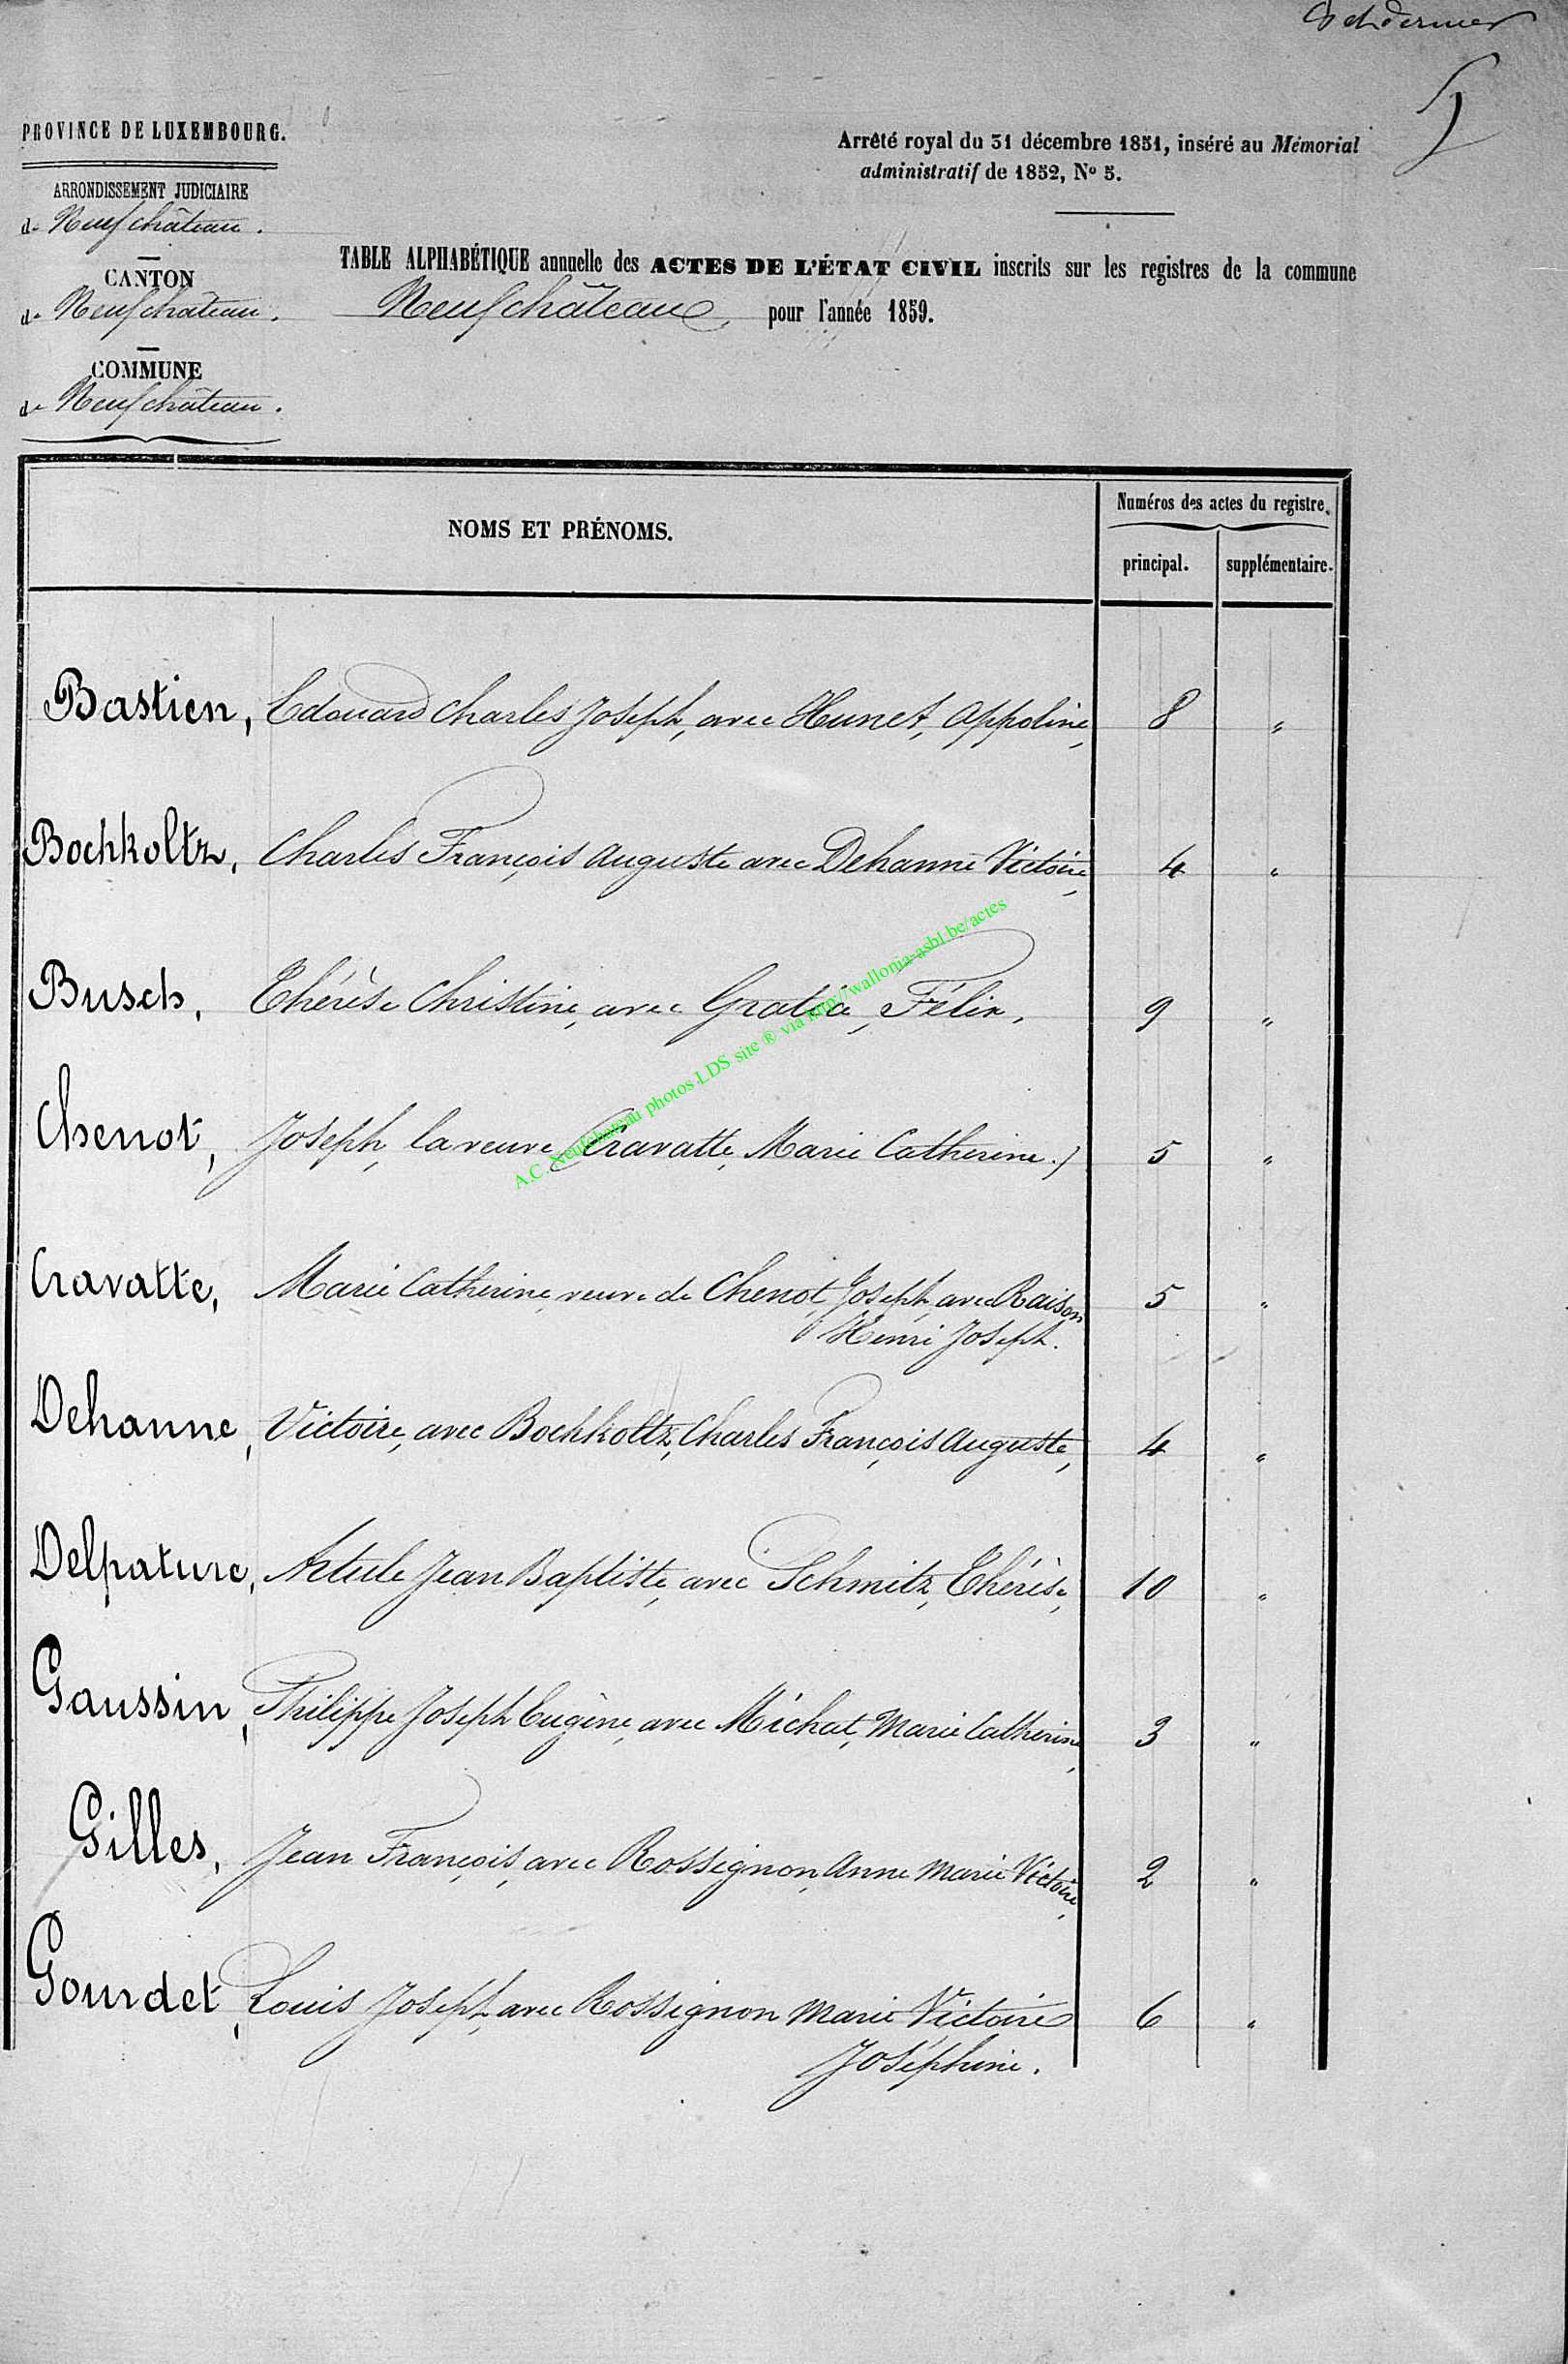 et dernier
PROVINCE DE LUXEMBOURG.
ARRONDISSEMENT JUDICIAIRE
de Neufchâteau.
CANTON
de Neufchâteau.
COMMUNE
de Neufchâteau.
Arrêté royal du 31 décembre 1851, inséré au Mémorial
administratif de 1852, No 5.
TABLE ALPHABÉTIQUE annuelle des ACTES DE L'ÉTAT CIVIL inscrits sur les registres de la commune
Neufchâteau, pour l'année 1859.
NOMS ET PRÉNOMS.
Numéros des actes du registre.
principal. supplémentaire.
Bastien, Edouard Charles Joseph, avec Hunet, Appoline, 8 "
Bochkoltz, Charles François Auguste avec Dehanne Victoire, 4 "
Busch, Thérèse Christine, avec Félix, 9 "
Chenot, Joseph, la veuve (Cravatte, Marie Catherine.) 5 "
Cravatte, Marie Catherine, veuve de Chenot, Joseph, avec Raison 5 "
Henri Joseph.
Dehanne, Victoire, avec Bochkoltz, Charles François Auguste, 4 "
Delpature, Jean Baptiste, avec Schmitz, Thérèse, 10 "
Gaussin, Philippe Joseph Eugène, avec Michat, Marie Catherine, 3 "
Gilles, Jean François, avec Rossignon, Anne Marie Victoire, 2 "
Gourdet, Louis Joseph, avec Rossignon Marie Victoire 6 "
Joséphine.
A.C. Neufchateau photos LDS site ® via http://wallonia-asbl.be/actes